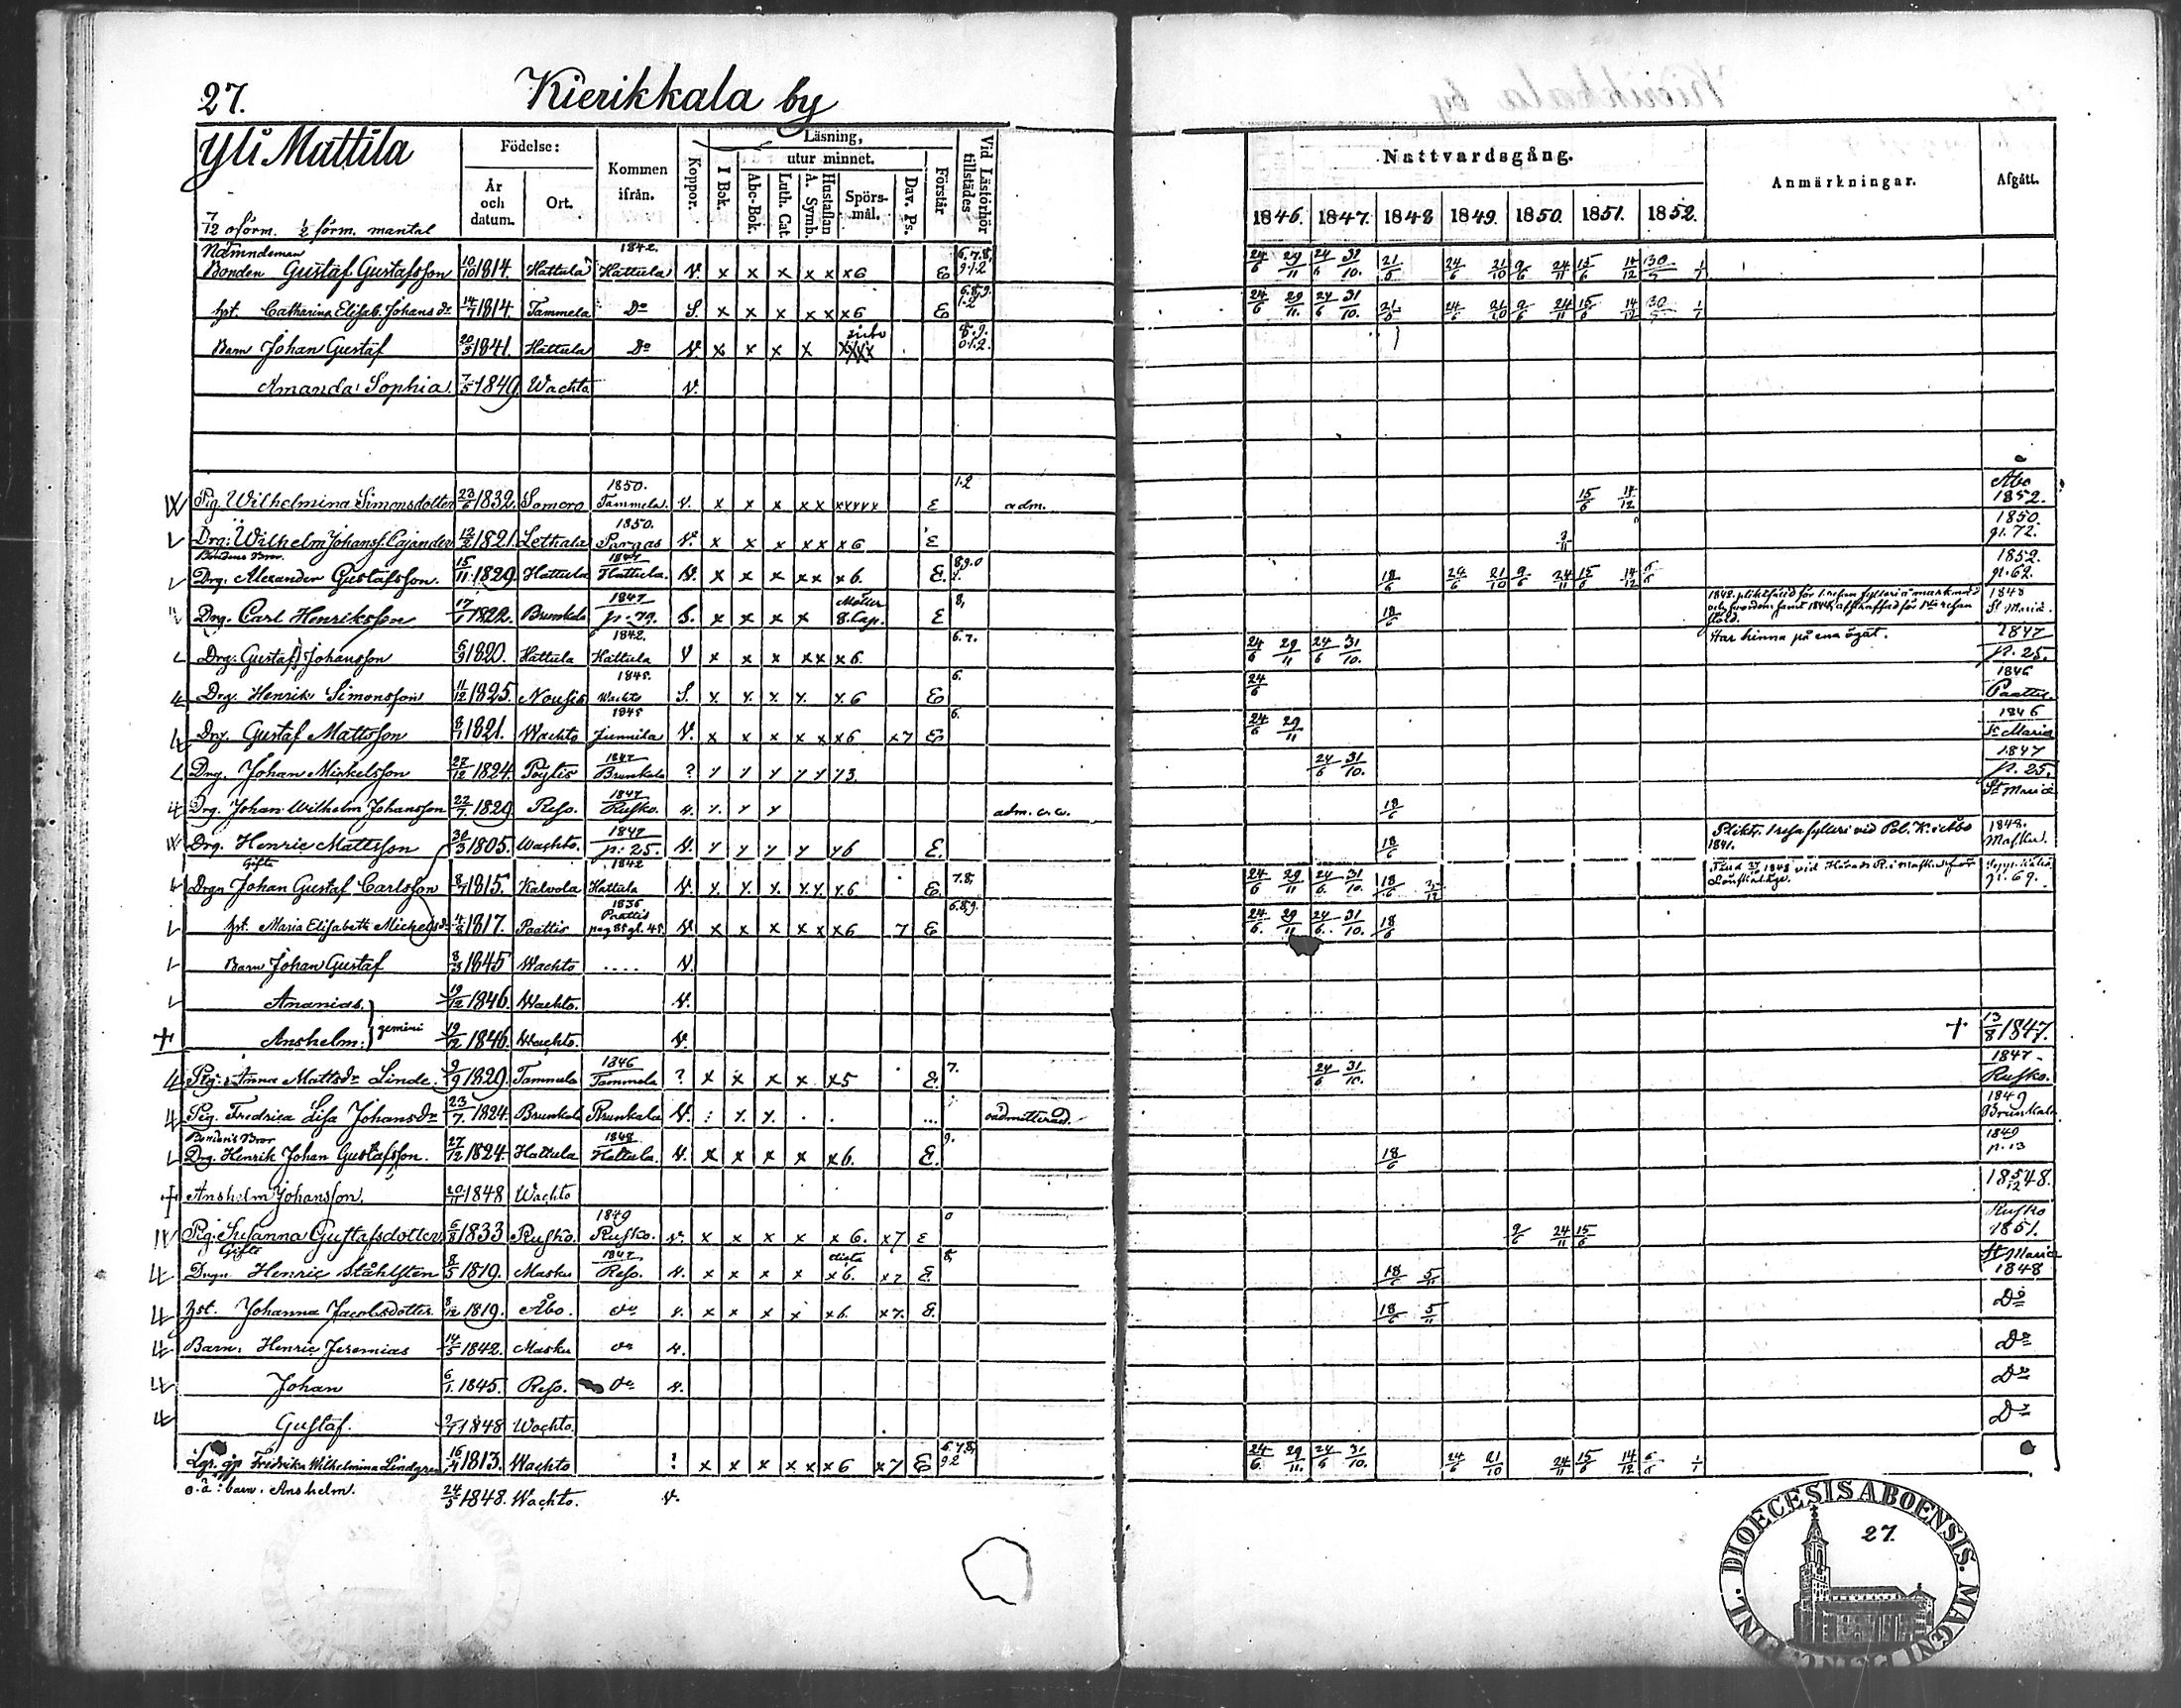 27. Kierikkala by
Yli Mattila
7/12 oförm. 1/2 förm. mantal
Födelse:
År och datum.
Ort.
Kommen ifrån.
Koppor.
Läsning,
I Bok.
utur minnet.
Abc-Bok.
Luth. Cat.
A. Symb.
Hustaflan
Spörs-mål.
Dav. Ps.
Förstår
Vid Läsförhör tillstädes
Nattvardsgång.
1846. 1847. 1848 1849. 1850. 1851. 1852.
Anmärkningar.
Afgått.
Nämndeman 1842.
Bonden Gustaf Gustafsson 10/10 1814. Hattula Hattula V. x x x x x x 6 E 24/6 29/11 24/6 31/10. 21/6 24/6 21/10 9/6 24/11 15/6 14/12 30/5 1/1
hst. Catharina Elisab. Johans dr 14/7 1814. Tammela Do S. x x x x x x 6 E 24/6 29/11. 24/6 31/10. 21/6 24/6 21/10 9/6 24/11 15/6 14/12 30 1/1
Barn Johan Gustaf 20/5 1841. Hattula Do V x x x x
Amanda Sophia. 7/5 1849 Wachto V.
Pig. Wilhelmina Simonsdotter 23/6 1832. Somero 1850. Tammela. v. x x x x x xxxxx E 1.2 adm. 15/6 14/12 Åbo 1852.
Drg: Wilhelm Johanss. Cajander 12/2 1821. Lethala 1850. Pargas x x x x x x 6 E 1850. p. 72.
Bondens Bror
Drg. Alexander Gustafsson. 15/11 1829 Hattula 1847 Hattula. V. x x x x x x 6. E. 18/6 24/6 21/10 9/6 24/11 15/6 14/12 1852. p. 62.
Drg. Carl Henriksson 17/1 1822. Brunkala 1847 p. 79. S. x x x x 8. Cap. E 8, 18/6 1848 St Marie.
Drg. Gustaf Johansson 6/9 1820. Hattula 1842. Hattula V x x x x x x 6. 6.7. 24/6 29/11 24/6 31/10. Har hinna på ena ögat. 1847 p. 25.
Drg. Henrik Simonsson 11/12 1825. Nousis 1845. Wachto S. x x x x. x 6 E 6. 24/6 1846 Paattis.
Drg. Gustaf Mattsson 8/1 1821. Wachto 1845 Junnila V. x x x x x x 6 x 7 E 6. 24/6 29/11 1846 St Marie
Drg. Johan Mickelsson 27/12 1824. Pöytis 1847 Brunkala ? x x x x x x 3. 24/6 31/10. 1847 p. 25.
Drg. Johan Wilhelm Johansson 22/7. 1829. Reso. 1847 Rusko. v. x x x 18/6 St Marie
Drg. Henric Mattsson 30/3 1805. Wachto. 1847 p. 25. V. x x x x x 6 E. 18/6 Plikt. 1 resa fylleri vid Pol. K. i Åbo 1841. 1848. Masku.
Gifte
Drgn Johan Gustaf Carlsson 8/7 1815. Kalvola 1842 Hattula V x. x. x. x. x. x. 6 E. 7.8, 24/6 29/11 24/6. 31/10. 18/6 p. 69.
hst. Maria Elisabeth Mickelsdr 4/8 1817. Paattis 1836 Paattis pag 85 gl. 45. V x x x x x x 6 7 E 6.8,9. 24/6. 29/11 24/6. 31/10. 18/6
Barn Johan Gustaf 8/3 1845 Wachto .... V.
Ananias. 19/12 1846. Wachto. V.
gemini
Anshelm. 19/12 1846. Wachto. V. + 13/8 1847.
Pig. Anna Mattsdr Linde. 9/9 1829. Tammela 1846 Tammela ? x x x x x 5 E. 7. 24/6 31/10. 1847 Rusko.
Pig. Fredrica Lisa Johansdr 23/7. 1824. Brunkala Brunkala V. x. x. ... oadmitterad. 1849 Brunkala
Bondens Bror
Drg. Henrik Johan Gustafsson. 27/12 1824 Hattula 1848 Hattula. v. x x x x x 6. E. 9. 18/6 1849 p. 13
Anshelm Johansson. 20/11 1848 Wachto 18 5/12 48.
Pig. Susanna Gustafsdotter 6/8 1833 Rusko. 1849 Rusko. v. x x x x x 6. x 7 E 0 9/6 24/11 15/6 Rusko 1851.
Gifte
Drgn Henric Ståhlsten 8/5 1819. Masku 1847 Reso. v. x x x x x 6. x 7 E 8, 18/6 5/11 St Marie 1848
hst. Johanna Jacobsdotter 8/12 1819. Åbo. do v. x x x x x 6. x 7. E. 18/6 5/11 Do
Barn: Henric Jeremias 14/5 1842. Masku do v. Do
Johan 6/1. 1845. Reso. Do v. Do
Gustaf. 1848 Wachto. Do
Fredrika Wilhelmina Lindgren 16/4 1813. Wachto ? x x x x x x 6 x 7 E 24/6. 29/11. 24/6 31/10. 24/6 21/10 24/11 15/6 14/12 1/1
o.ä: barn. Anshelm. 24/5 1848. Wachto. v.
DIOECESIS ABOENSIS. MAGNI
27.